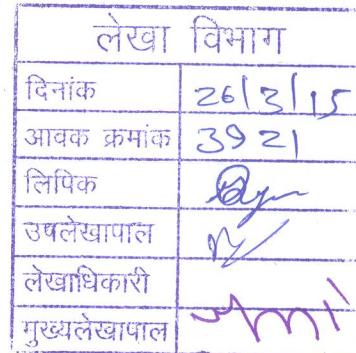 लेखा विभाग
दिनांक 26/3/15
आवक क्रमांक 3921
लिपिक
उपलेखापाल
लेखाधिकारी
मुख्यलेखापाल